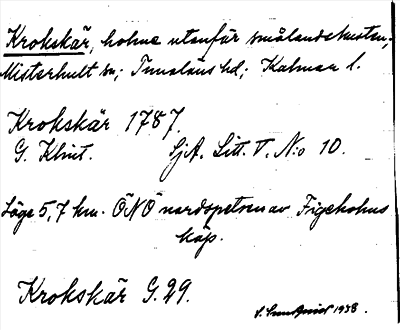 Krokskär, holme utanför smålandskusten;
Misterhult sn; Tunaläns hd; Kalmar l.
Krokskär 1787.
G. Klint. SjA. Litt. V. N:o 10.
Läge 5,7 km. ÖNÖ nordspetsen av Figeholms
kap.
Krokskär G. 29.
1938.